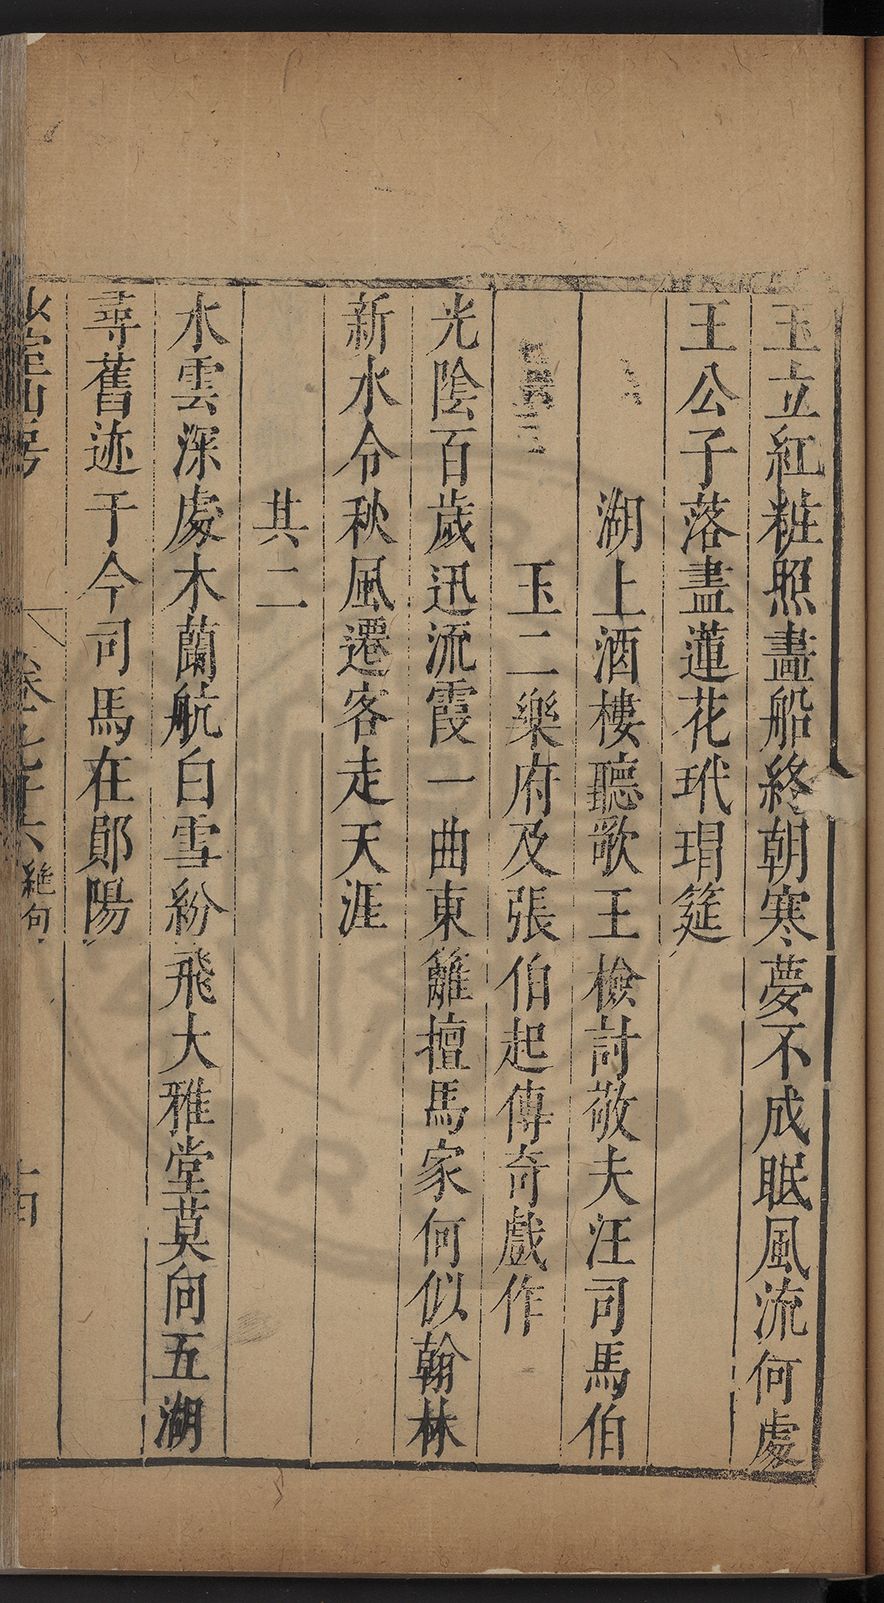 玉立紅粧照畵船終朝寒夢不成眠風流何處
王公子落盡蓮花玳瑁筵
湖上酒樓聽歌王檢討敬夫汪司馬伯
玉二樂府及張伯起傳奇戲作
光陰百歲迅流霞一曲東籬擅馬家何似翰林
新水令秋風遷客走天涯
其二
水雲深處木蘭航白雪紛飛大雅堂莫向五湖
尋舊迹于今司馬在鄖陽
卷之七十六 絶句